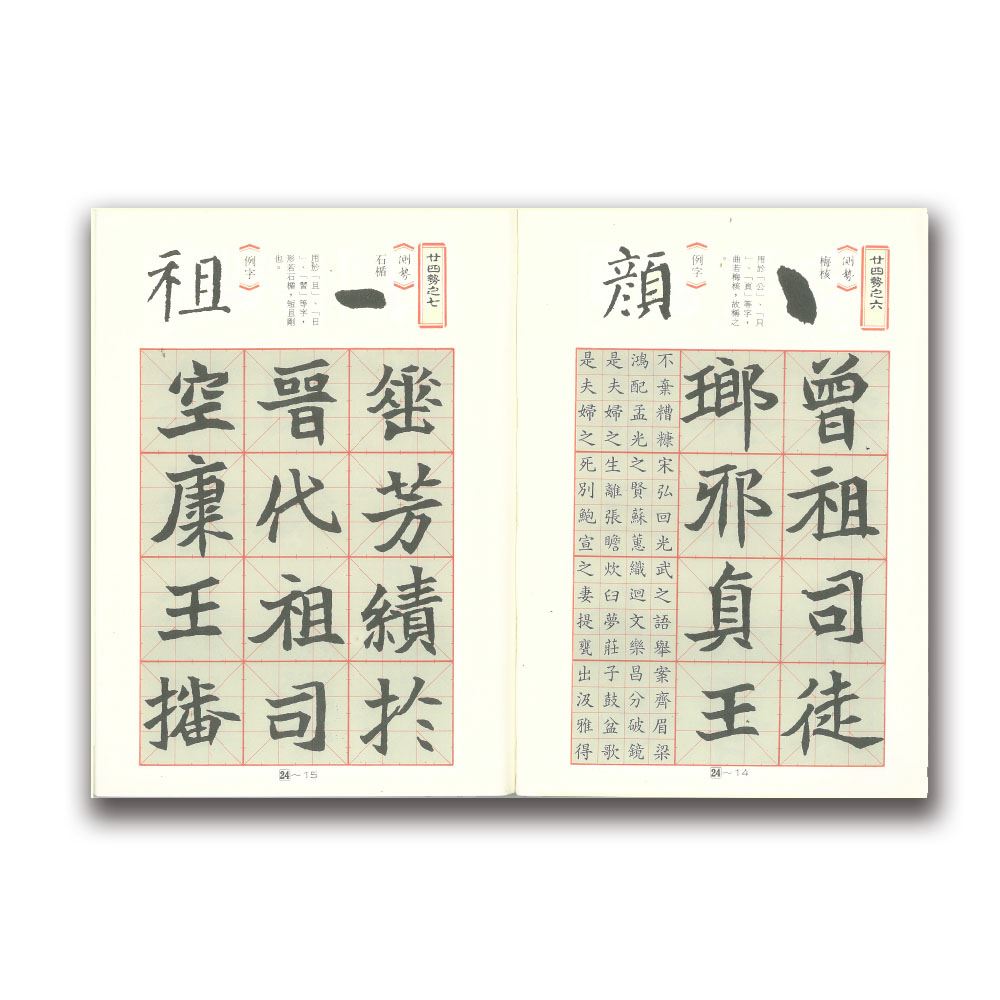 廿四勢之六
《測勢》
梅核
用於「公」、「只
」、「貞」等字，
曲若梅核，故稱之
。
《例字》
顏
曾祖司徒
瑯邪貞王
不棄糟糠宋弘回光武之語舉案齊眉梁
鴻配孟光之賢蘇蕙織迴文樂昌分破鏡
是夫婦之生離張瞻炊臼夢莊子鼓盆歌
是夫婦之死別鮑宣之妻提甕出汲雅得
24～14
廿四勢之七
《測勢》
石楯
用於「且」、「日
」、「習」等字，
形若石楯，短且剛
也。
《例字》
祖
垂芳績於
晉代祖司
空康王播
24～15